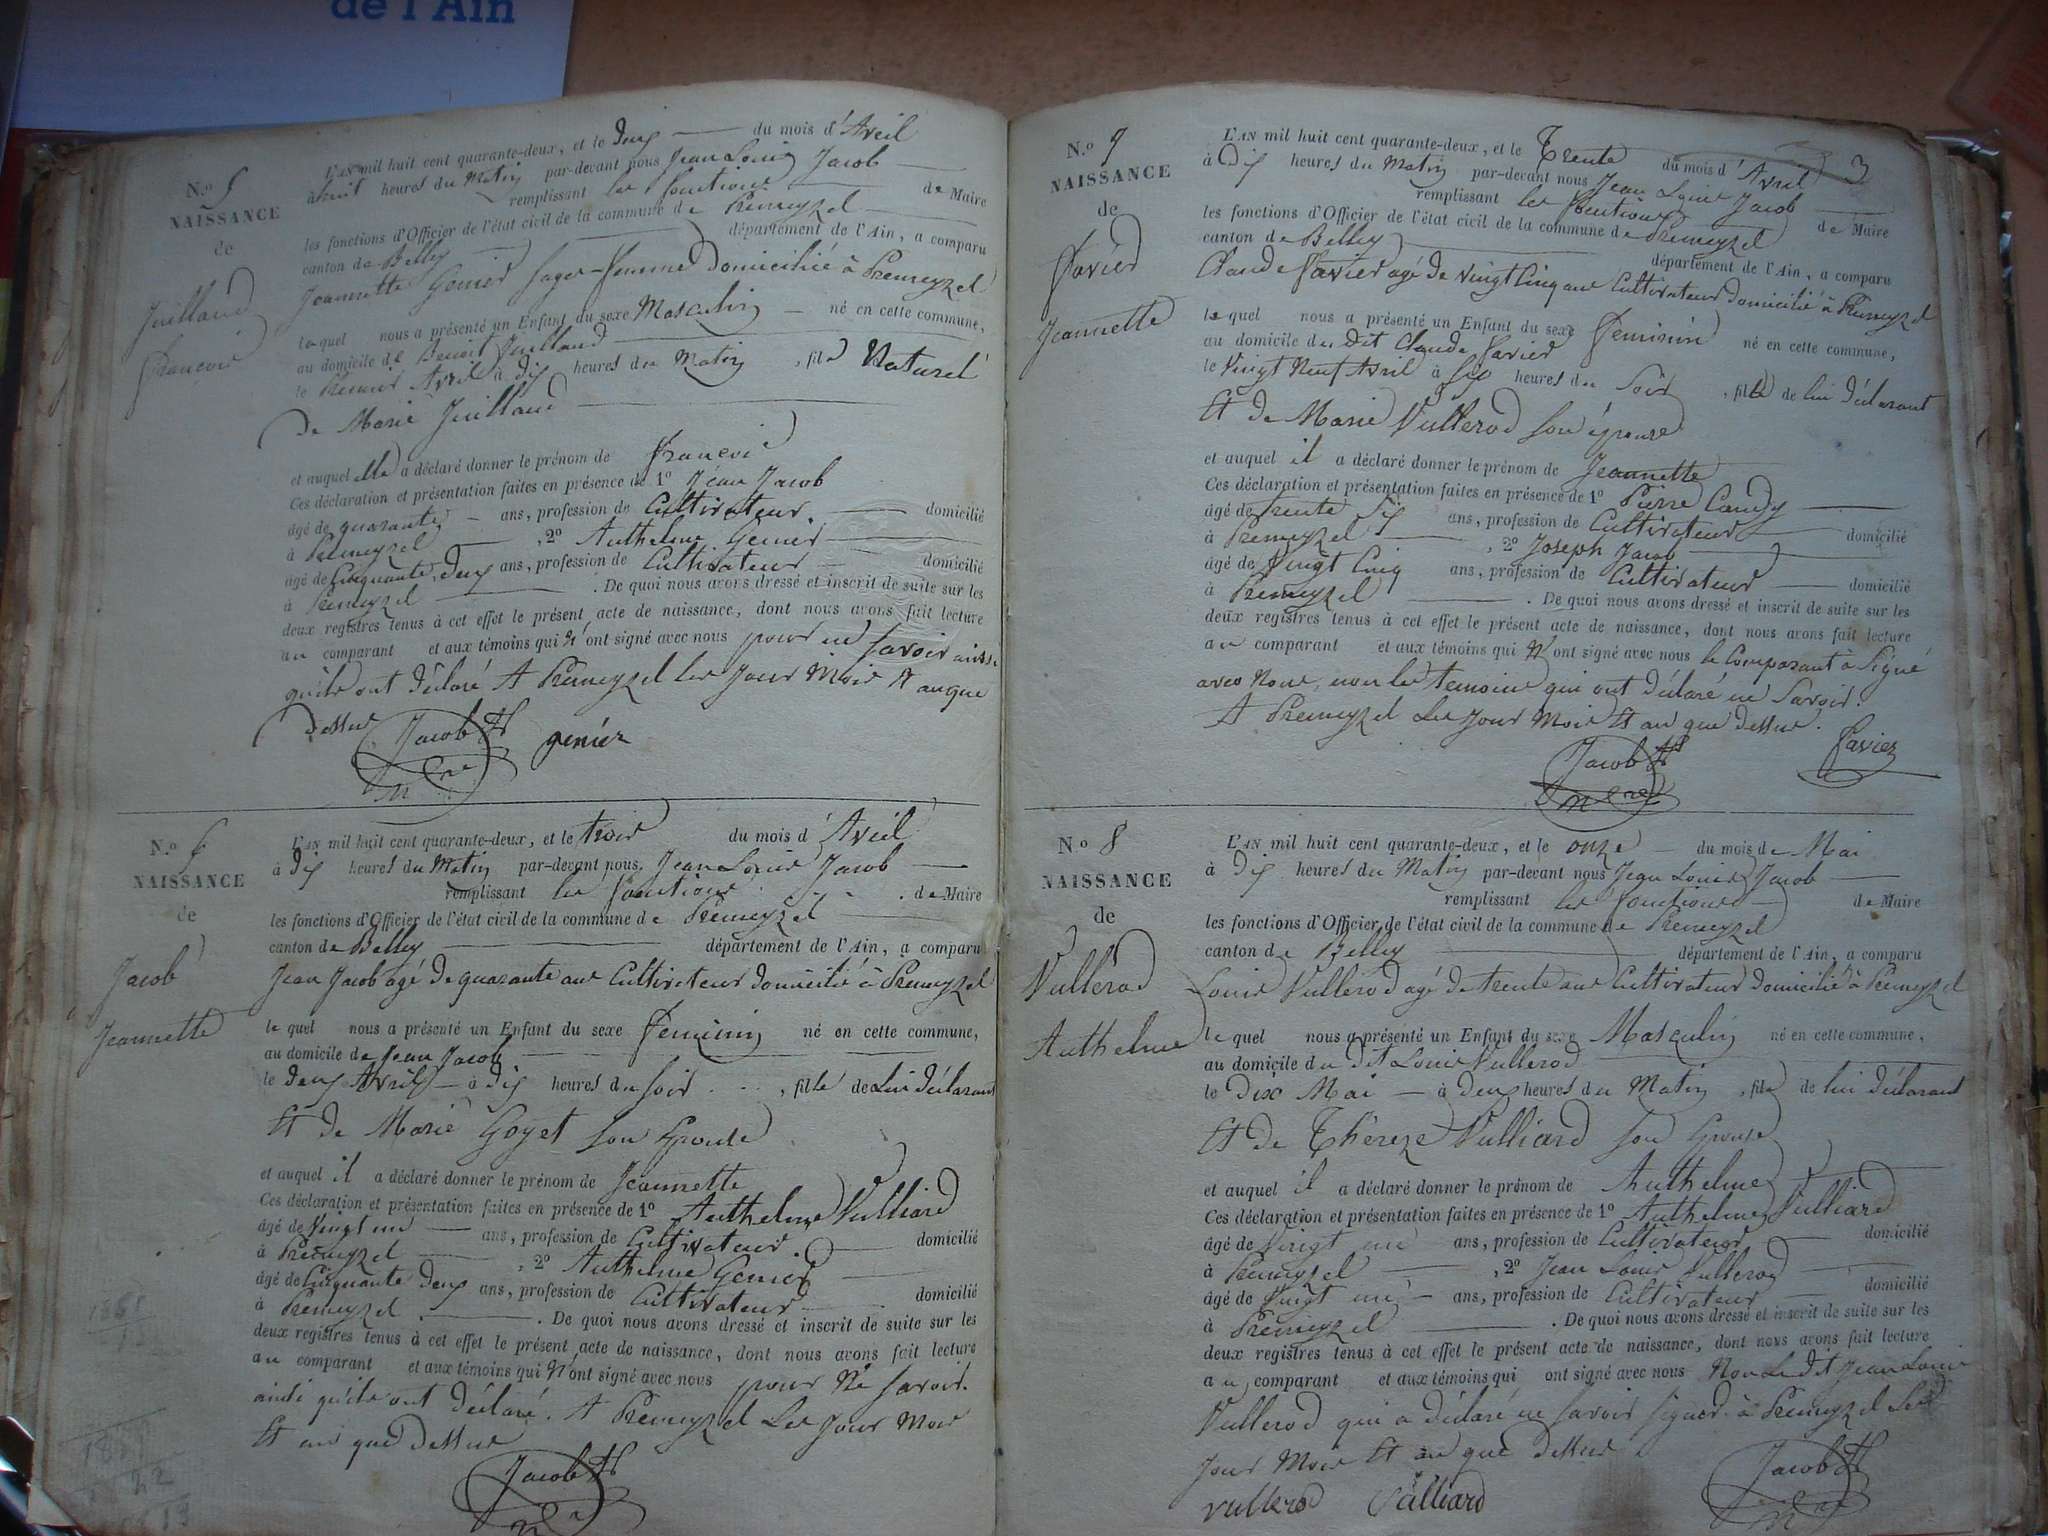 de l'Ain
N.o 5
NAISSANCE
de
Juilland
francois
L'AN mil huit cent quarante-deux, et le deux du mois d'Avril
à huit heures du Matin par-devant nous Jean Louis Jacob
remplissant les fonctions de Maire
les fonctions d'Officier de l'état civil de la commune de Premeyzel
canton de Belley département de l'Ain, a comparu
Jeannette Genier Sage-femme domicilié à Premeyzel
lequel nous a présenté un Enfant du sexe Masculin né en cette commune,
au domicile de Benoit Juilland
le Premier Avril à dix heures du Matin, fils Naturel
de Marie Juilland
et auquel elle a déclaré donner le prénom de francois
Ces déclaration et présentation faites en présence de 1º Jean Jacob
âgé de quarante ans, profession de Cultivateur domicilié
à Premeyzel, 2º Anthelme Genier
âgé de Cinquante deux ans, profession de Cultivateur domicilié
à Premeyzel. De quoi nous avons dressé et inscrit de suite sur les
deux registres tenus à cet effet le présent acte de naissance, dont nous avons fait lecture
au comparant et aux témoins qui n'ont signé avec nous pour ne savoir ainsi
qu'ils ont déclaré A Premeyzel les jour Mois et an que
dessus Jacob genier
mre
N.o 6
NAISSANCE
de
Jacob
Jeannette
L'AN mil huit cent quarante-deux, et le trois du mois d'Avril
à dix heures du Matin par-devant nous Jean Louis Jacob
remplissant les fonctions de Maire
les fonctions d'Officier de l'état civil de la commune de Premeyzel
canton de Belley département de l'Ain, a comparu
Jean Jacob agé de quarante ans Cultivateur domicilié à Premeyzel
lequel nous a présenté un Enfant du sexe feminin né en cette commune,
au domicile de Jean Jacob
le deux Avril à dix heures du soir, fille de Lui déclarant
Et de Marie Goyet son Epouse
et auquel il a déclaré donner le prénom de Jeannette
Ces déclaration et présentation faites en présence de 1º Anthelme Vulliard
âgé de Vingt un ans, profession de Cultivateur domicilié
à Premeyzel, 2º Anthelme Genier
âgé de Cinquante deux ans, profession de Cultivateur domicilié
à Premeyzel. De quoi nous avons dressé et inscrit de suite sur les
deux registres tenus à cet effet le présent acte de naissance, dont nous avons fait lecture
au comparant et aux témoins qui n'ont signé avec nous pour ne savoir.
ainsi qu'ils ont déclaré. A Premeyzel Les Jour Mois
Et an que dessus
Jacob
mre
3
N.o 7
NAISSANCE
de
favier
Jeannette
L'AN mil huit cent quarante-deux, et le Trente du mois d'Avril
à Dix heures du Matin par-devant nous Jean Louis Jacob
remplissant les fonctions de Maire
les fonctions d'Officier de l'état civil de la commune de Premeyzel
canton de Belley département de l'Ain, a comparu
Claude favier agé de vingt Cinq ans Cultivateur domicilié à Premeyzel
lequel nous a présenté un Enfant du sexe feminin né en cette commune,
au domicile du dit Claude favier
le Vingt Neuf Avril à six heures du Soir, fille de lui déclarant
Et de Marie Vullerod son épouse
et auquel il a déclaré donner le prénom de Jeannette
Ces déclaration et présentation faites en présence de 1º Pierre Candy
âgé de trente six ans, profession de Cultivateur domicilié
à Premeyzel, 2º Joseph Jacob
âgé de Vingt Cinq ans, profession de Cultivateur domicilié
à Premeyzel. De quoi nous avons dressé et inscrit de suite sur les
deux registres tenus à cet effet le présent acte de naissance, dont nous avons fait lecture
au comparant et aux témoins qui n'ont signé avec nous le Comparant à Signé
avec Nous, non les temoins qui ont déclaré ne Savoir.
A Premeyzel Les Jour Mois Et an que dessus.
Jacob favier
mre
No 8
NAISSANCE
de
Vullerod
Anthelme
L'AN mil huit cent quarante-deux, et le onze du mois de Mai
à dix heures du Matin par-devant nous Jean Louis Jacob
remplissant les fonctions de Maire
les fonctions d'Officier de l'état civil de la commune de Premeyzel
canton de Belley département de l'Ain, a comparu
Louis Vullerod agé de trente ans Cultivateur domicilié à Premeyzel
lequel nous a présenté un Enfant du sexe Masculin né en cette commune,
au domicile du dit Louis Vullerod
le Dix Mai à deux heures du Matin, fils de lui déclarant
Et de Thérèze Vulliard son Epouse
et auquel il a déclaré donner le prénom de Anthelme
Ces déclaration et présentation faites en présence de 1º Anthelme Vulliard
âgé de Vingt un ans, profession de Cultivateur domicilié
à Premeyzel, 2º Jean Louis Vullerod
âgé de Vingt un ans, profession de Cultivateur domicilié
à Premeyzel. De quoi nous avons dressé et inscrit de suite sur les
deux registres tenus à cet effet le présent acte de naissance, dont nous avons fait lecture
au comparant et aux témoins qui ont signé avec nous Non Le dit Jean Louis
Vullerod qui a déclaré ne savoir signer. à Premeyzel Les
Jour Mois Et an que dessus
Vullerod Vulliard Jacob
mre